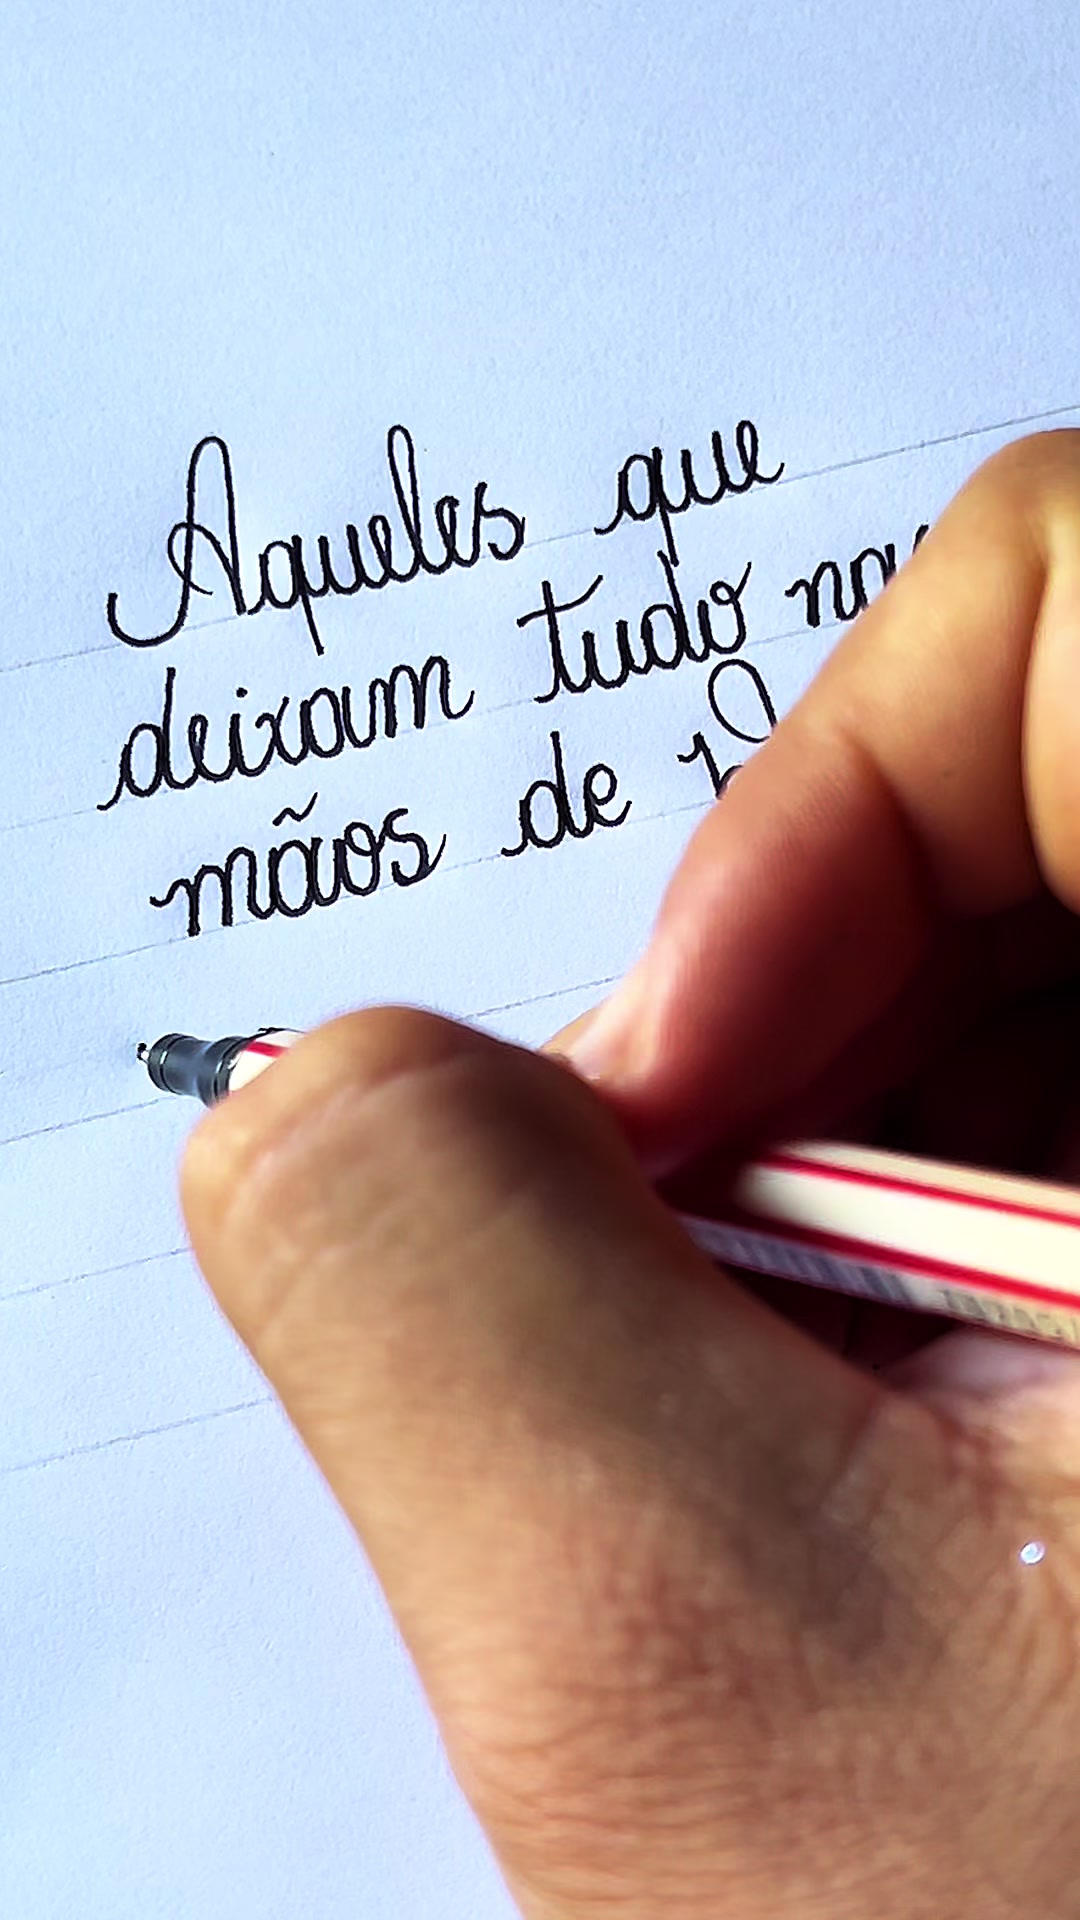 Aqueles que
deixam tudo
mãos de